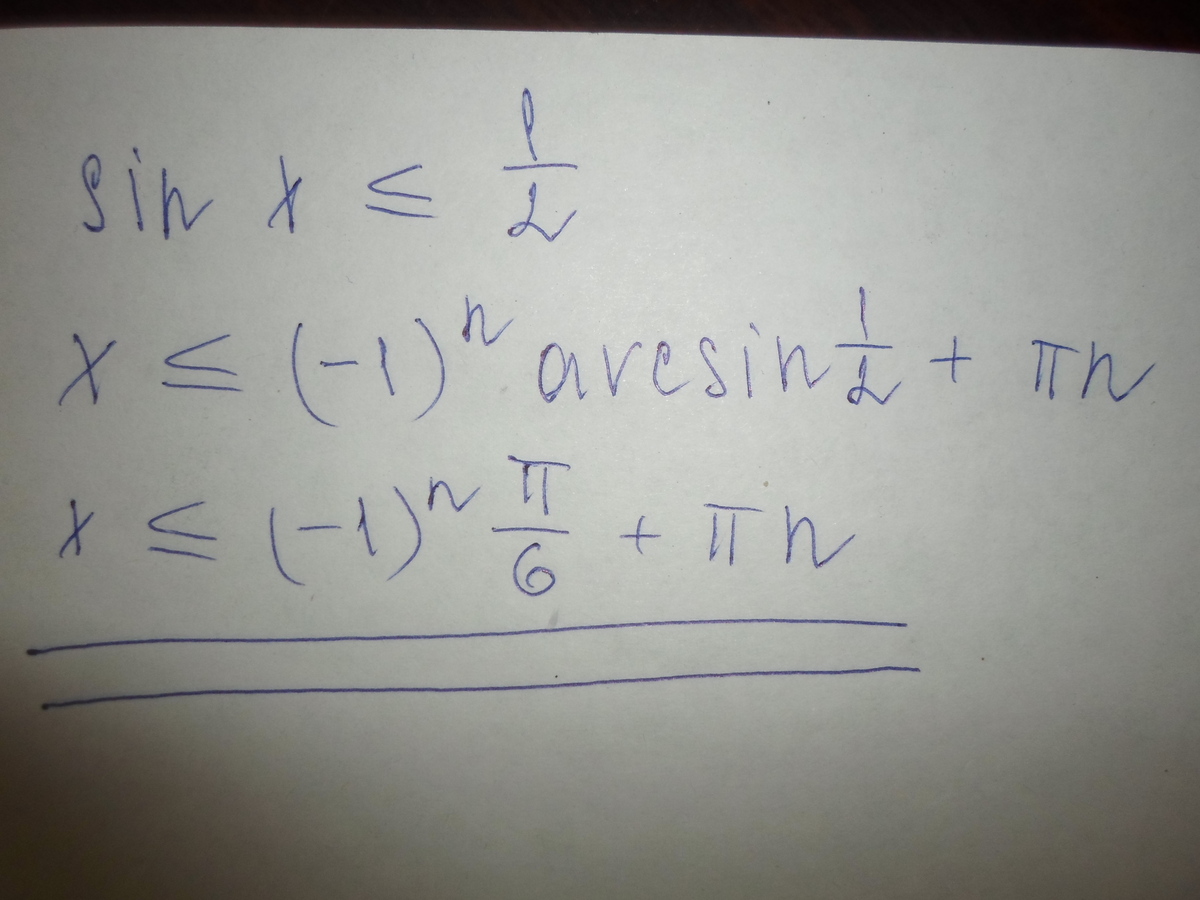 sin x ≤ 1/2
x ≤ (-1)ⁿ arcsin 1/2 + πn
x ≤ (-1)ⁿ π/6 + πn